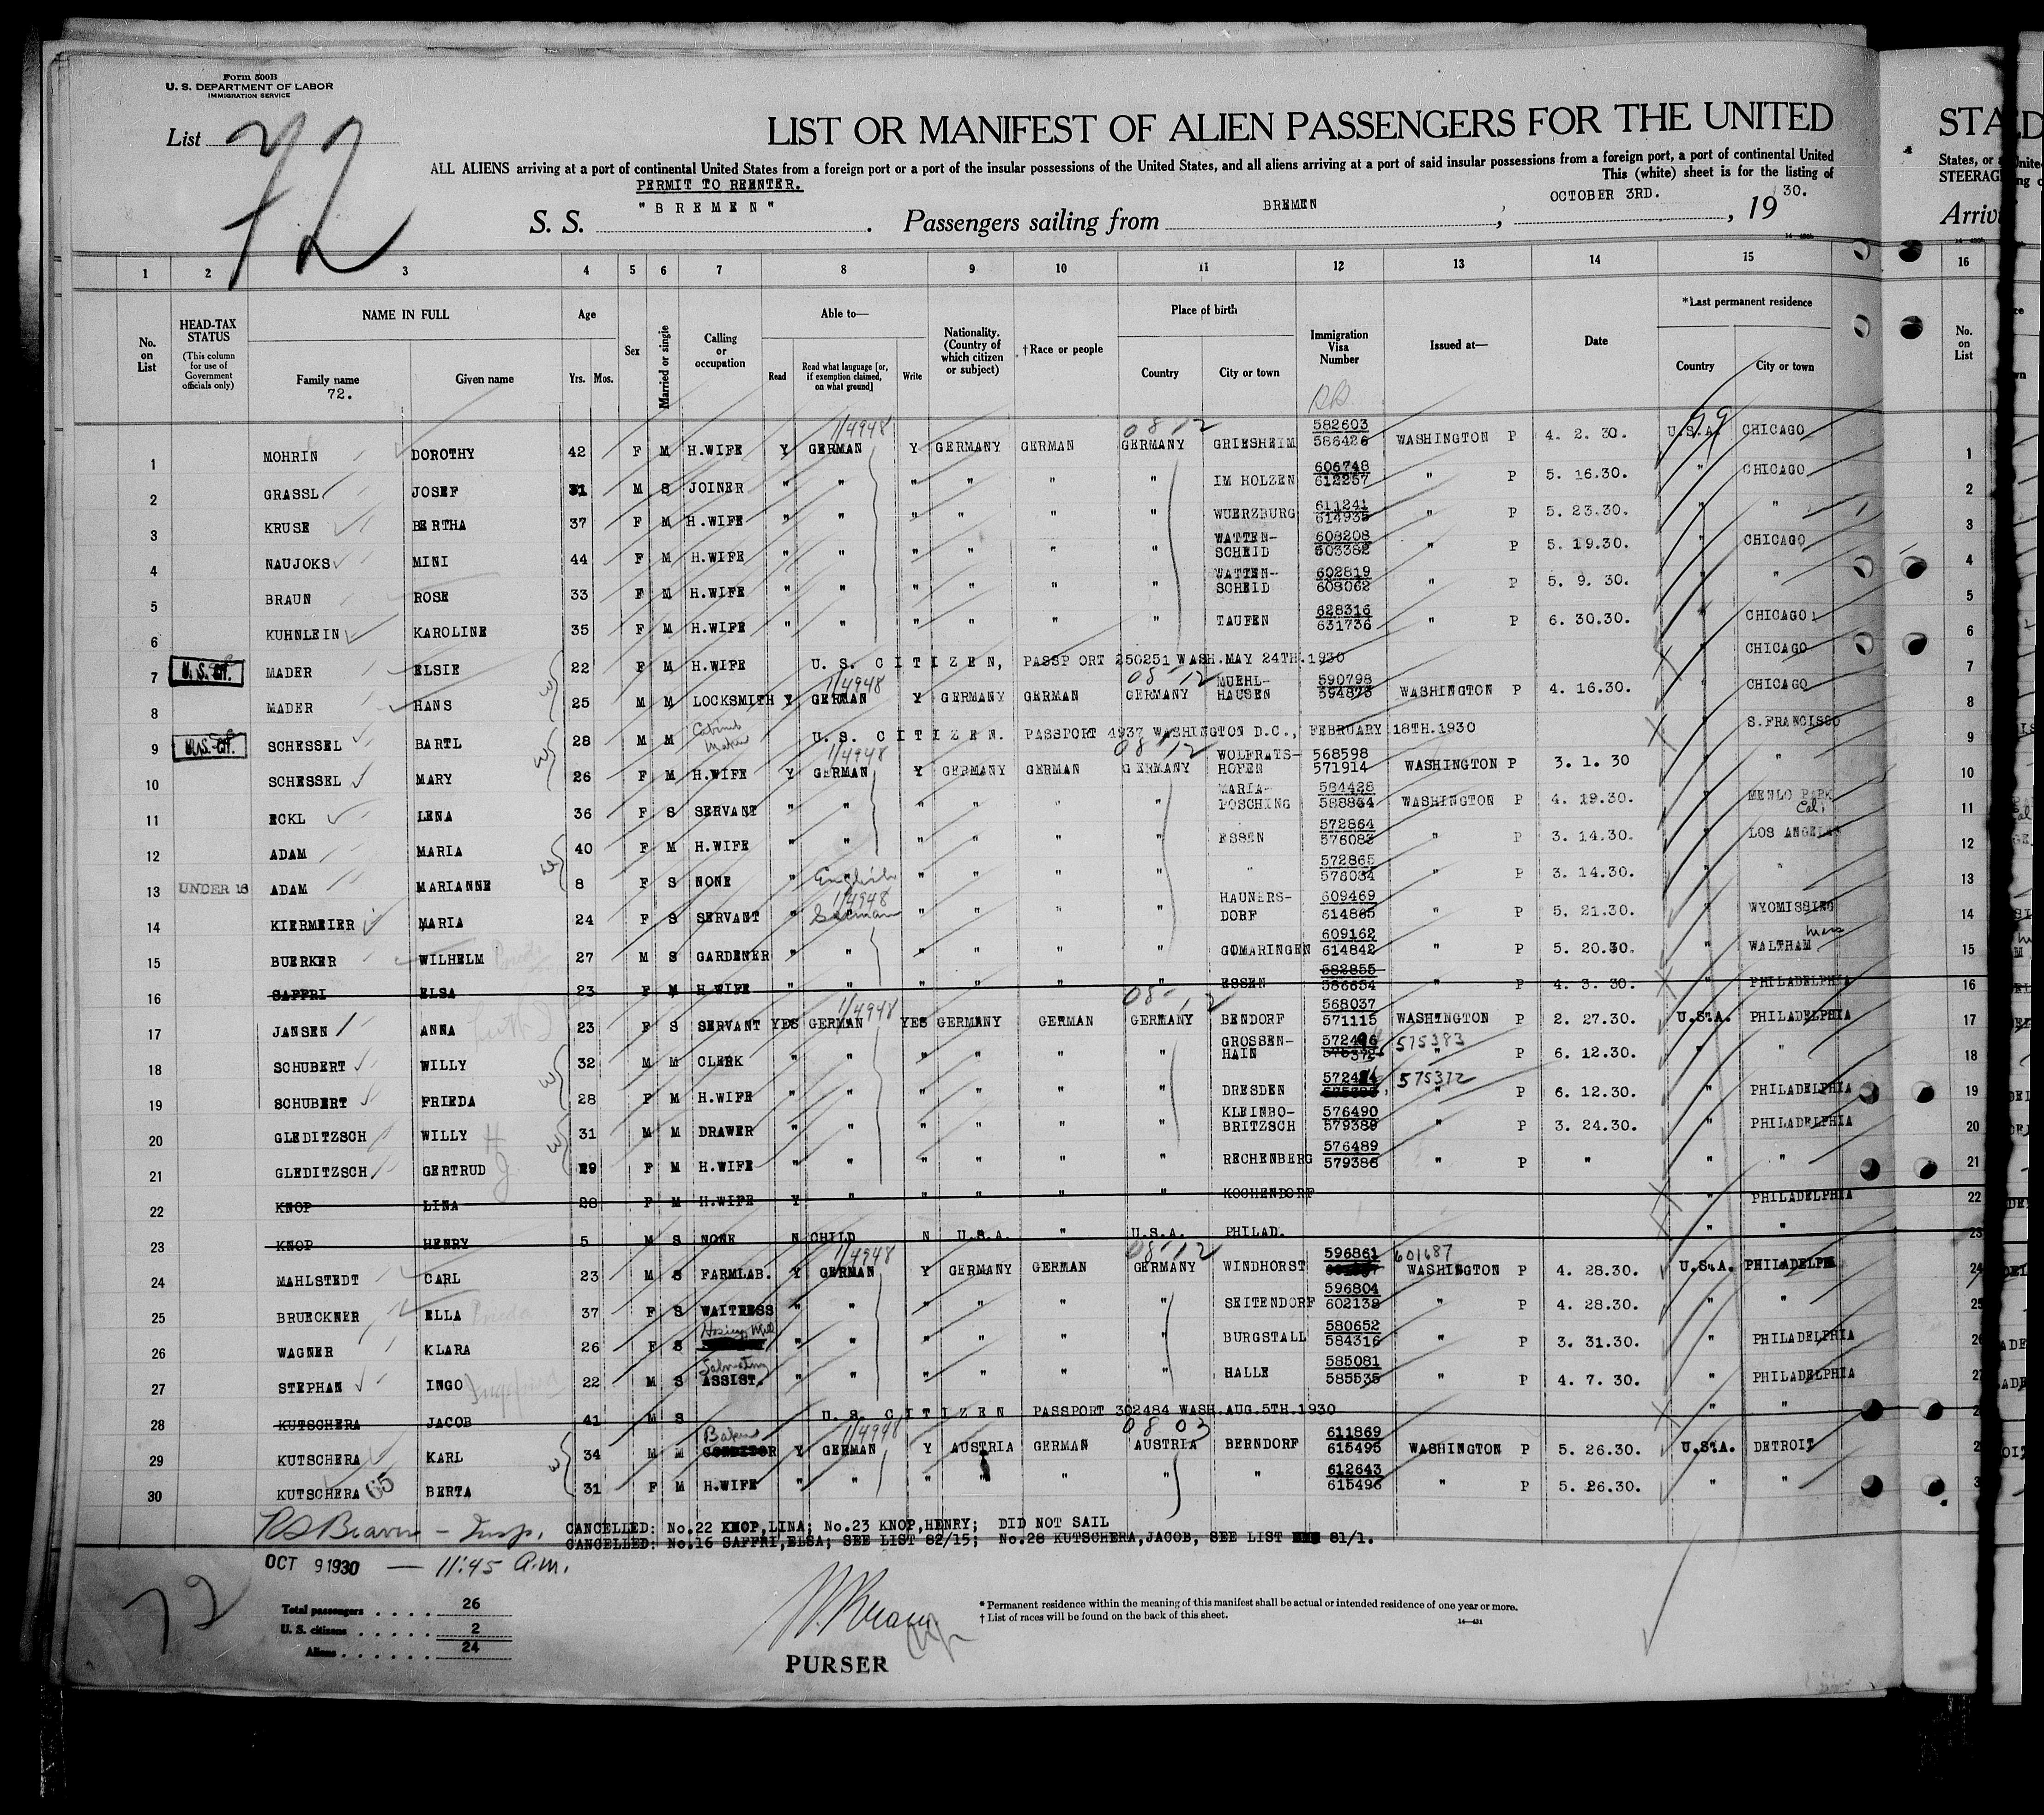 Form 500B
U. S. DEPARTMENT OF LABOR
IMMIGRATION SERVICE
List 72
LIST OR MANIFEST OF ALIEN PASSENGERS FOR THE UNITED
ALL ALIENS arriving at a port of continental United States from a foreign port or a port of the insular possessions of the United States, and all aliens arriving at a port of said insular possessions from a foreign port, a port of continental United
This (white) sheet is for the listing of
PERMIT TO REENTER.
S. S. "BREMEN". Passengers sailing from BREMEN, OCTOBER 3RD., 1930.
1 2 3 4 5 6 7 8 9 10 11 12 13 14 15
No. on List
HEAD-TAX STATUS
(This column for use of Government officials only)
NAME IN FULL
Family name
72.
Given name
Age
Yrs. Mos.
Sex
Married or single
Calling or occupation
Able to—
Read
Read what language [or, if exemption claimed, on what ground]
Write
Nationality. (Country of which citizen or subject)
†Race or people
Place of birth
Country
City or town
Immigration Visa Number
Issued at—
Date
*Last permanent residence
Country
City or town
1 MOHRIN DOROTHY 42 F M H.WIFE Y GERMAN 1/4948 Y GERMANY GERMAN GERMANY 08-12 GRIESHEIM 582603 586426 WASHINGTON P 4. 2. 30. U.S.A. 99 CHICAGO
2 GRASSL JOSEF 31 M S JOINER " " " " " " IM HOLZEN 606748 612257 " P 5. 16.30. " CHICAGO
3 KRUSE BERTHA 37 F M H.WIFE " " " " " " WUERZBURG 611241 614935 " P 5. 23.30. " "
4 NAUJOKS MINI 44 F M H.WIFE " " " " " " WATTEN-SCHEID 608208 603382 " P 5. 19.30. " CHICAGO
5 BRAUN ROSE 33 F M H.WIFE " " " " " " WATTEN-SCHEID 602819 608062 " P 5. 9. 30. " "
6 KUHNLEIN KAROLINE 35 F M H.WIFE " " " " " " TAUFEN 628316 631736 " P 6. 30.30. " CHICAGO
7 U.S.CIT. MADER ELSIE 22 F M H.WIFE U. S. CITIZEN, PASSPORT 250251 WASH.MAY 24TH.1930 CHICAGO
8 MADER HANS 25 M M LOCKSMITH Y GERMAN 1/4948 Y GERMANY GERMAN GERMANY 08-12 MUEHL-HAUSEN 590798 594873 WASHINGTON P 4. 16.30. " CHICAGO
9 U.S.CIT. SCHESSEL BARTL 28 M M Cabinet Maker U. S. CITIZEN. PASSPORT 4937 WASHINGTON D.C., FEBRUARY 18TH.1930 S.FRANCISCO
10 SCHESSEL MARY 26 F M H.WIFE Y GERMAN 1/4948 Y GERMANY GERMAN GERMANY 08-12 WOLFRATS-HOFEN 568598 571914 WASHINGTON P 3. 1. 30 " "
11 ECKL LENA 36 F S SERVANT " " " " " " MARIA-POSCHING 584428 588864 WASHINGTON P 4. 19.30. " MENLO PARK Cal.
12 ADAM MARIA 40 F M H.WIFE " " " " " " ESSEN 572864 576083 " P 3. 14.30. " LOS ANGELES
13 UNDER 16 ADAM MARIANNE 8 F S NONE " English " " " " " 572865 576084 " P 3. 14.30. "
14 KIERMEIER MARIA 24 F S SERVANT " 1/4948 German " " " " HAUNERS-DORF 609469 614865 " P 5. 21.30. " WYOMISSING
15 BUERKER WILHELM 27 M S GARDENER " " " " " " GOMARINGEN 609162 614842 " P 5. 20.30. " WALTHAM Mass
16 SAFFRI ELSA 23 F M H.WIFE " " " " " " ESSEN 582855 586654 " P 4. 3. 30. " PHILADELPHIA
17 JANSEN ANNA 23 F S SERVANT YES GERMAN 1/4948 YES GERMANY GERMAN GERMANY 08-12 BENDORF 568037 571115 WASHINGTON P 2. 27.30. U.S.A. PHILADELPHIA
18 SCHUBERT WILLY 32 M M CLERK " " " " " " GROSSEN-HAIN 575383 " P 6. 12.30. " "
19 SCHUBERT FRIEDA 28 F M H.WIFE " " " " " " DRESDEN 575372 " P 6. 12.30. " PHILADELPHIA
20 GLEDITZSCH WILLY 31 M M DRAWER " " " " " " KLEINBO-BRITZSCH 576490 579389 " P 3. 24.30. " PHILADELPHIA
21 GLEDITZSCH GERTRUD 29 F M H.WIFE " " " " " " RECHENBERG 576489 579386 " P " " "
22 KNOP LINA 28 F M H.WIFE Y " " " " " KOCHENDORF " PHILADELPHIA
23 KNOP HENRY 5 M S NONE N CHILD N U.S.A. " U.S.A. PHILAD. " "
24 MAHLSTEDT CARL 23 M S FARMLAB. Y GERMAN 1/4948 Y GERMANY GERMAN GERMANY 08-12 WINDHORST 596861 601687 WASHINGTON P 4. 28.30. U.S.A. PHILADELPH
25 BRUECKNER ELLA 37 F S WAITRESS " " " " " " SEITENDORF 596804 602138 " P 4. 28.30. " "
26 WAGNER KLARA 26 F S Hosiery Mill " " " " " " BURGSTALL 580652 584316 " P 3. 31.30. " PHILADELPHIA
27 STEPHAN INGO 22 M S Laboratory ASSIST. " " " " " " HALLE 585081 585535 " P 4. 7. 30. " PHILADELPHIA
28 KUTSCHERA JACOB 41 M S U. S. CITIZEN PASSPORT 302484 WASH.AUG.5TH.1930 " "
29 KUTSCHERA KARL 34 M M Baker CONDITOR Y GERMAN 1/4948 Y AUSTRIA GERMAN AUSTRIA 08 03 BERNDORF 611869 615495 WASHINGTON P 5. 26.30. U.S.A. DETROIT
30 KUTSCHERA 65 BERTA 31 F M H.WIFE " " " " " " " 612643 615496 " P 5. 26.30. " "
CANCELLED: No.22 KNOP,LINA; No.23 KNOP,HENRY; DID NOT SAIL
CANCELLED: No.16 SAFFRI,ELSA; SEE LIST 82/15; No.28 KUTSCHERA,JACOB, SEE LIST 81/1.
OCT 9 1930 — 11:45 A.M.
72
Total passengers .... 26
U. S. citizens ..... 2
Aliens ...... 24
PURSER
* Permanent residence within the meaning of this manifest shall be actual or intended residence of one year or more.
† List of races will be found on the back of this sheet.
STA
States, or
STEERAG
Arriv
16
No. on List